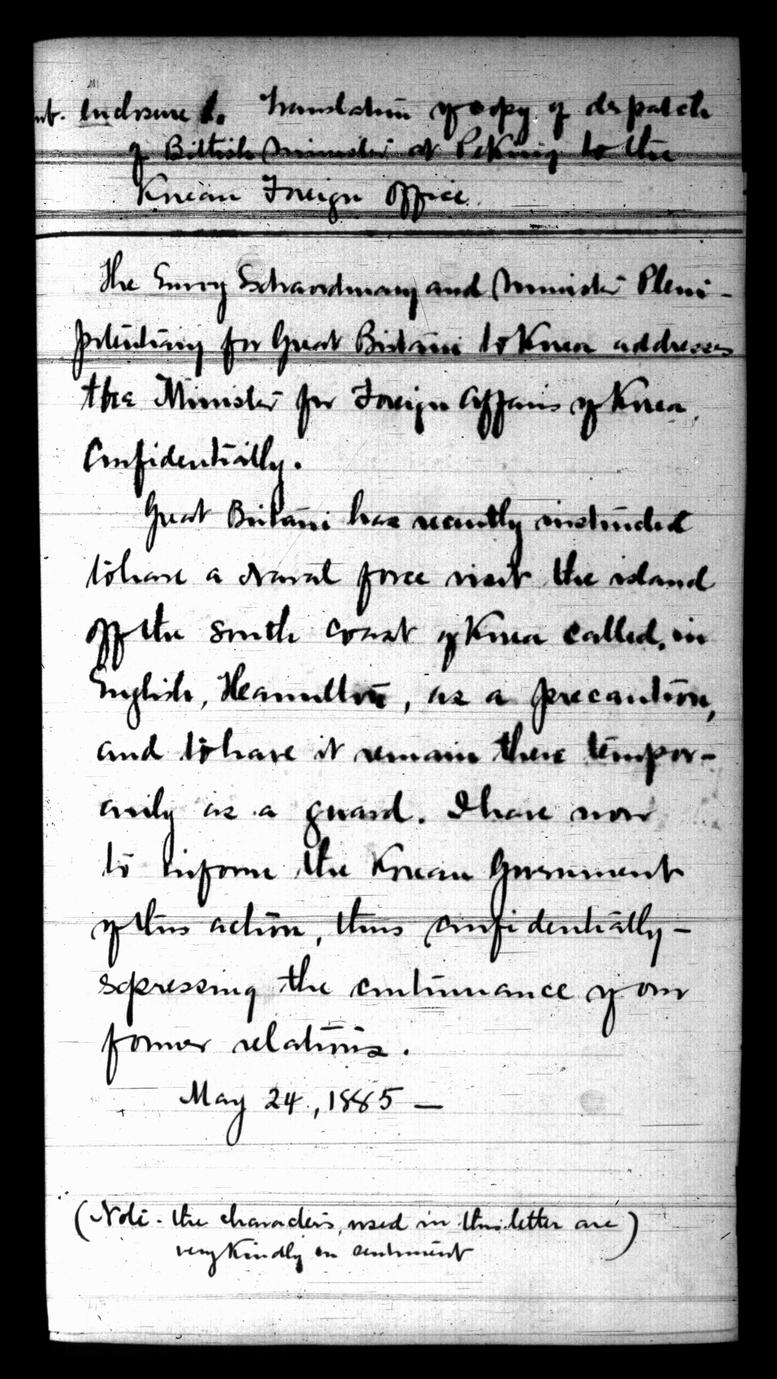 Inclosure 1. Translation of copy of despatch
of British Minister at Peking to the
Korean Foreign Office.
The Envoy Extraordinary and Minister Pleni-
potentiary for Great Britain to Korea addresses
the Minister for Foreign Affairs of Korea,
Confidentially.
Great Britain has recently instructed
to have a Naval force visit the island
off the South Coast of Korea called, in
English, Hamilton, as a precaution,
and to have it remain there tempor-
arily as a guard. I have now
to inform the Korean Government
of this action, thus confidentially-
expressing the continuance of our
former relations.
May 24, 1885 —
(Note - the characters, used in this letter are)
very kindly in sentiment